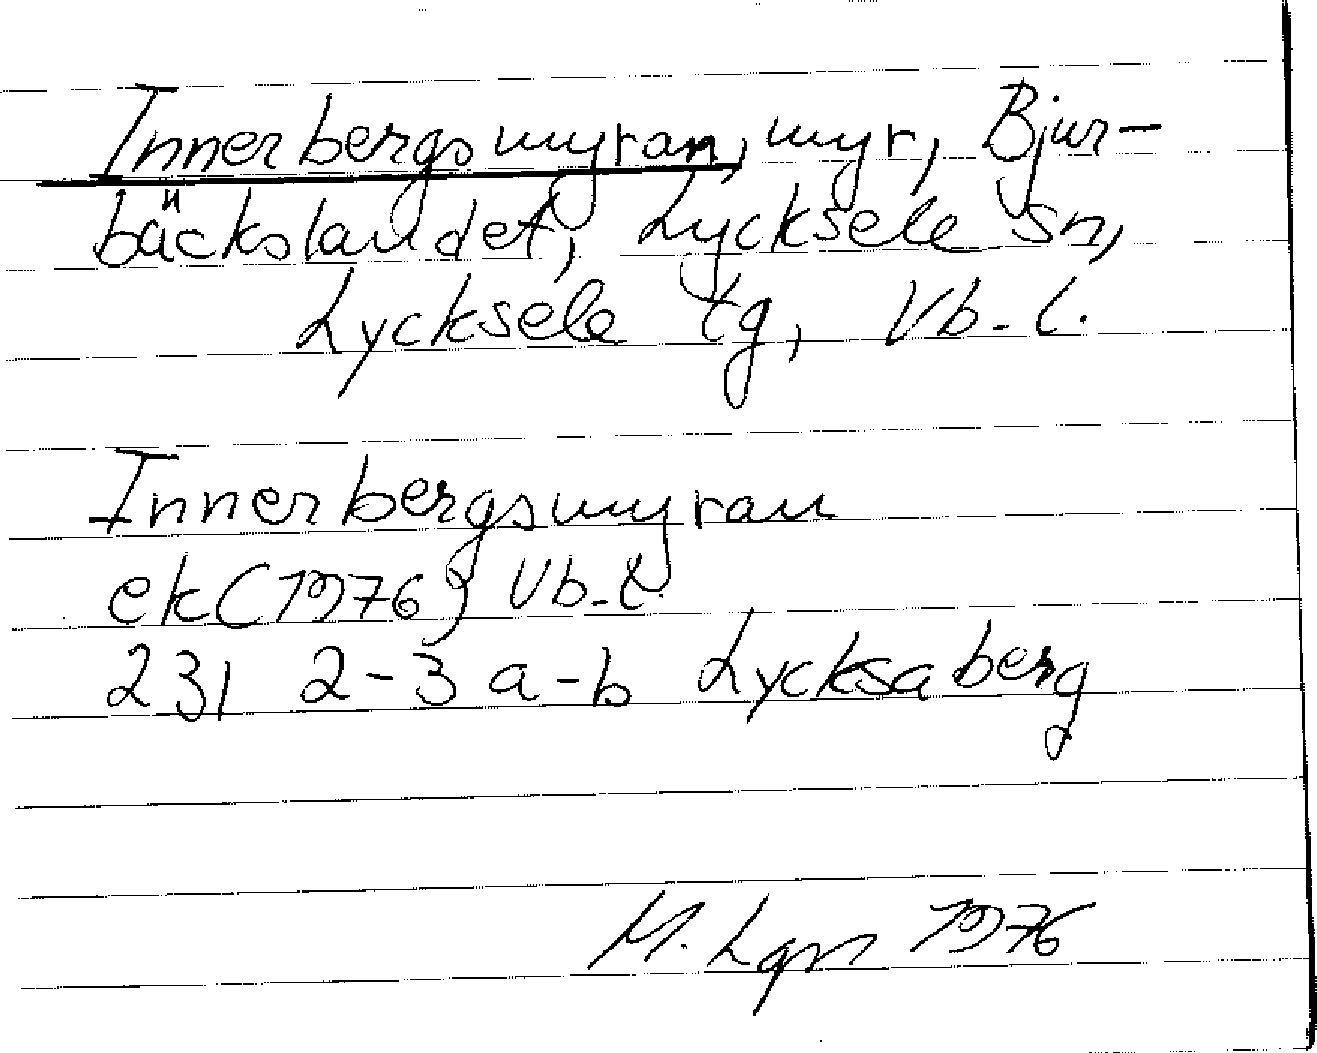 Innerbergsmyran, myr, Bjur-
bäckslandet, Lycksele sn,
Lycksele tg, Vb. l.
Innerbergsmyran
ek (1976) Vb. l.
231 2-3 a-b Lycksaberg
M. Lgn 1976